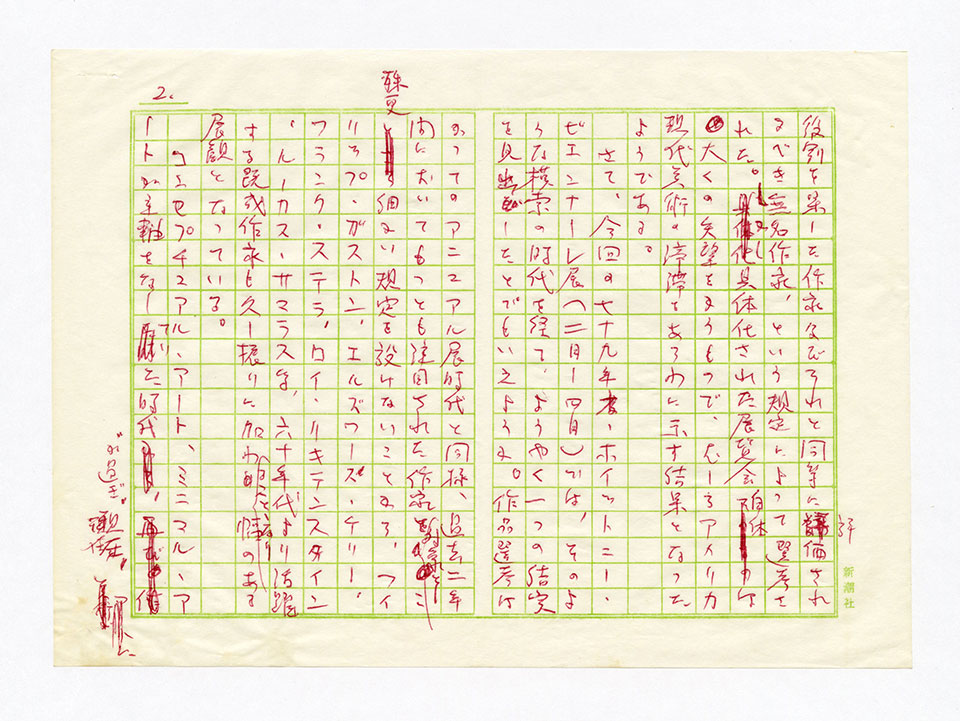 2.
役割を果した作家及びそれと同等に評価され
るべき無名作家、という規定によって選考さ
れた。しかし具体化された展覧会自体は
大くの失望を買うもので、むしろアメリカ
現代美術の停滞をあらわに示す結果となった
ようである。
さて、今回の七十九年、ホイットニー・
ビエンナーレ展(二月ー四月)では、そのよ
うな模索の時代を経て、ようやく一つの結実
を見出したとでもいえような。作品選考は
かってのアニュアル展時代と同様、過去二年
間においてもっとも注目された作家
殊更細かい規定を設けないことにあり、フィ
リップ・ガストン、エルズワーズ・ケリー、
フランク・ステラ、ロイ・リキテンスタイン
、ルーカス・サマラス等、六十年代より活躍
する既成作家も久し振りに加わり のある
展観となっている。
コンセプチュアル・アート、ミニマル・ア
ートが主軸をなした時代が過ぎ、現在、
新潮社